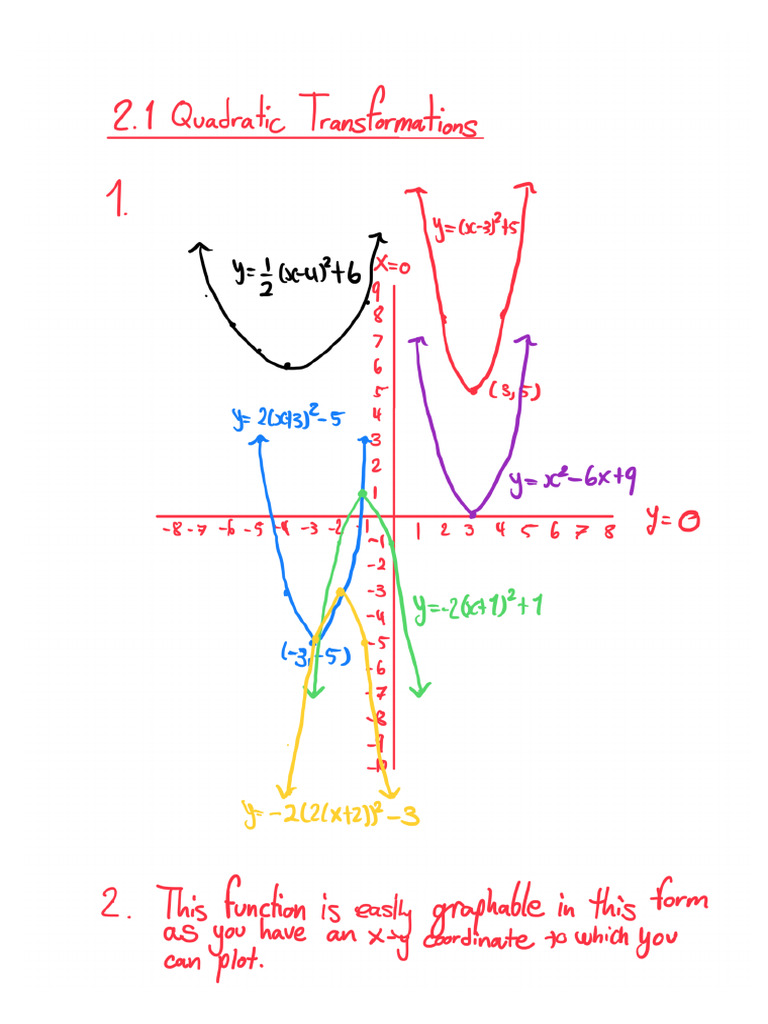 2.1 Quadratic Transformations
1.
y=(x-3)²+5
y=½(x-4)²+6
x=0
9
8
7
6
5
(3,5)
y=2(x+3)²-5
4
3
2
y=x²-6x+9
1
y=0
-8 -7 -6 -5 -4 -3 -2 -1 1 2 3 4 5 6 7 8
-1
-2
-3
y=-2(x+1)²+1
-4
-5
(-3,-5)
-6
-7
-8
-9
-10
y=-2(2(x+2))²-3
2. This function is easily graphable in this form
as you have an x-y coordinate to which you
can plot.